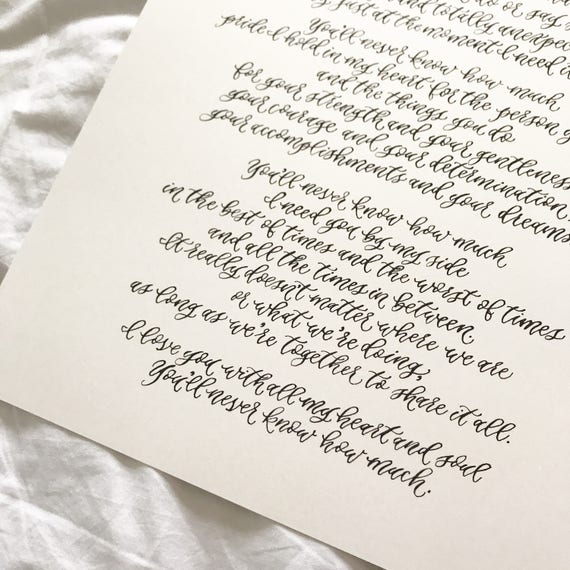 do or say s
and totally unexpec
just at the moment I need i
You'll never know how much
pride I hold in my heart for the person y
and the things you do
for your strength and your gentleness
your courage and your determination
your accomplishments and your dreams
You'll never know how much
I need you by my side
in the best of times and the worst of times
and all the times in between.
It really doesn't matter where we are
or what we're doing,
as long as we're together to share it all.
I love you with all my heart and soul
You'll never know how much.